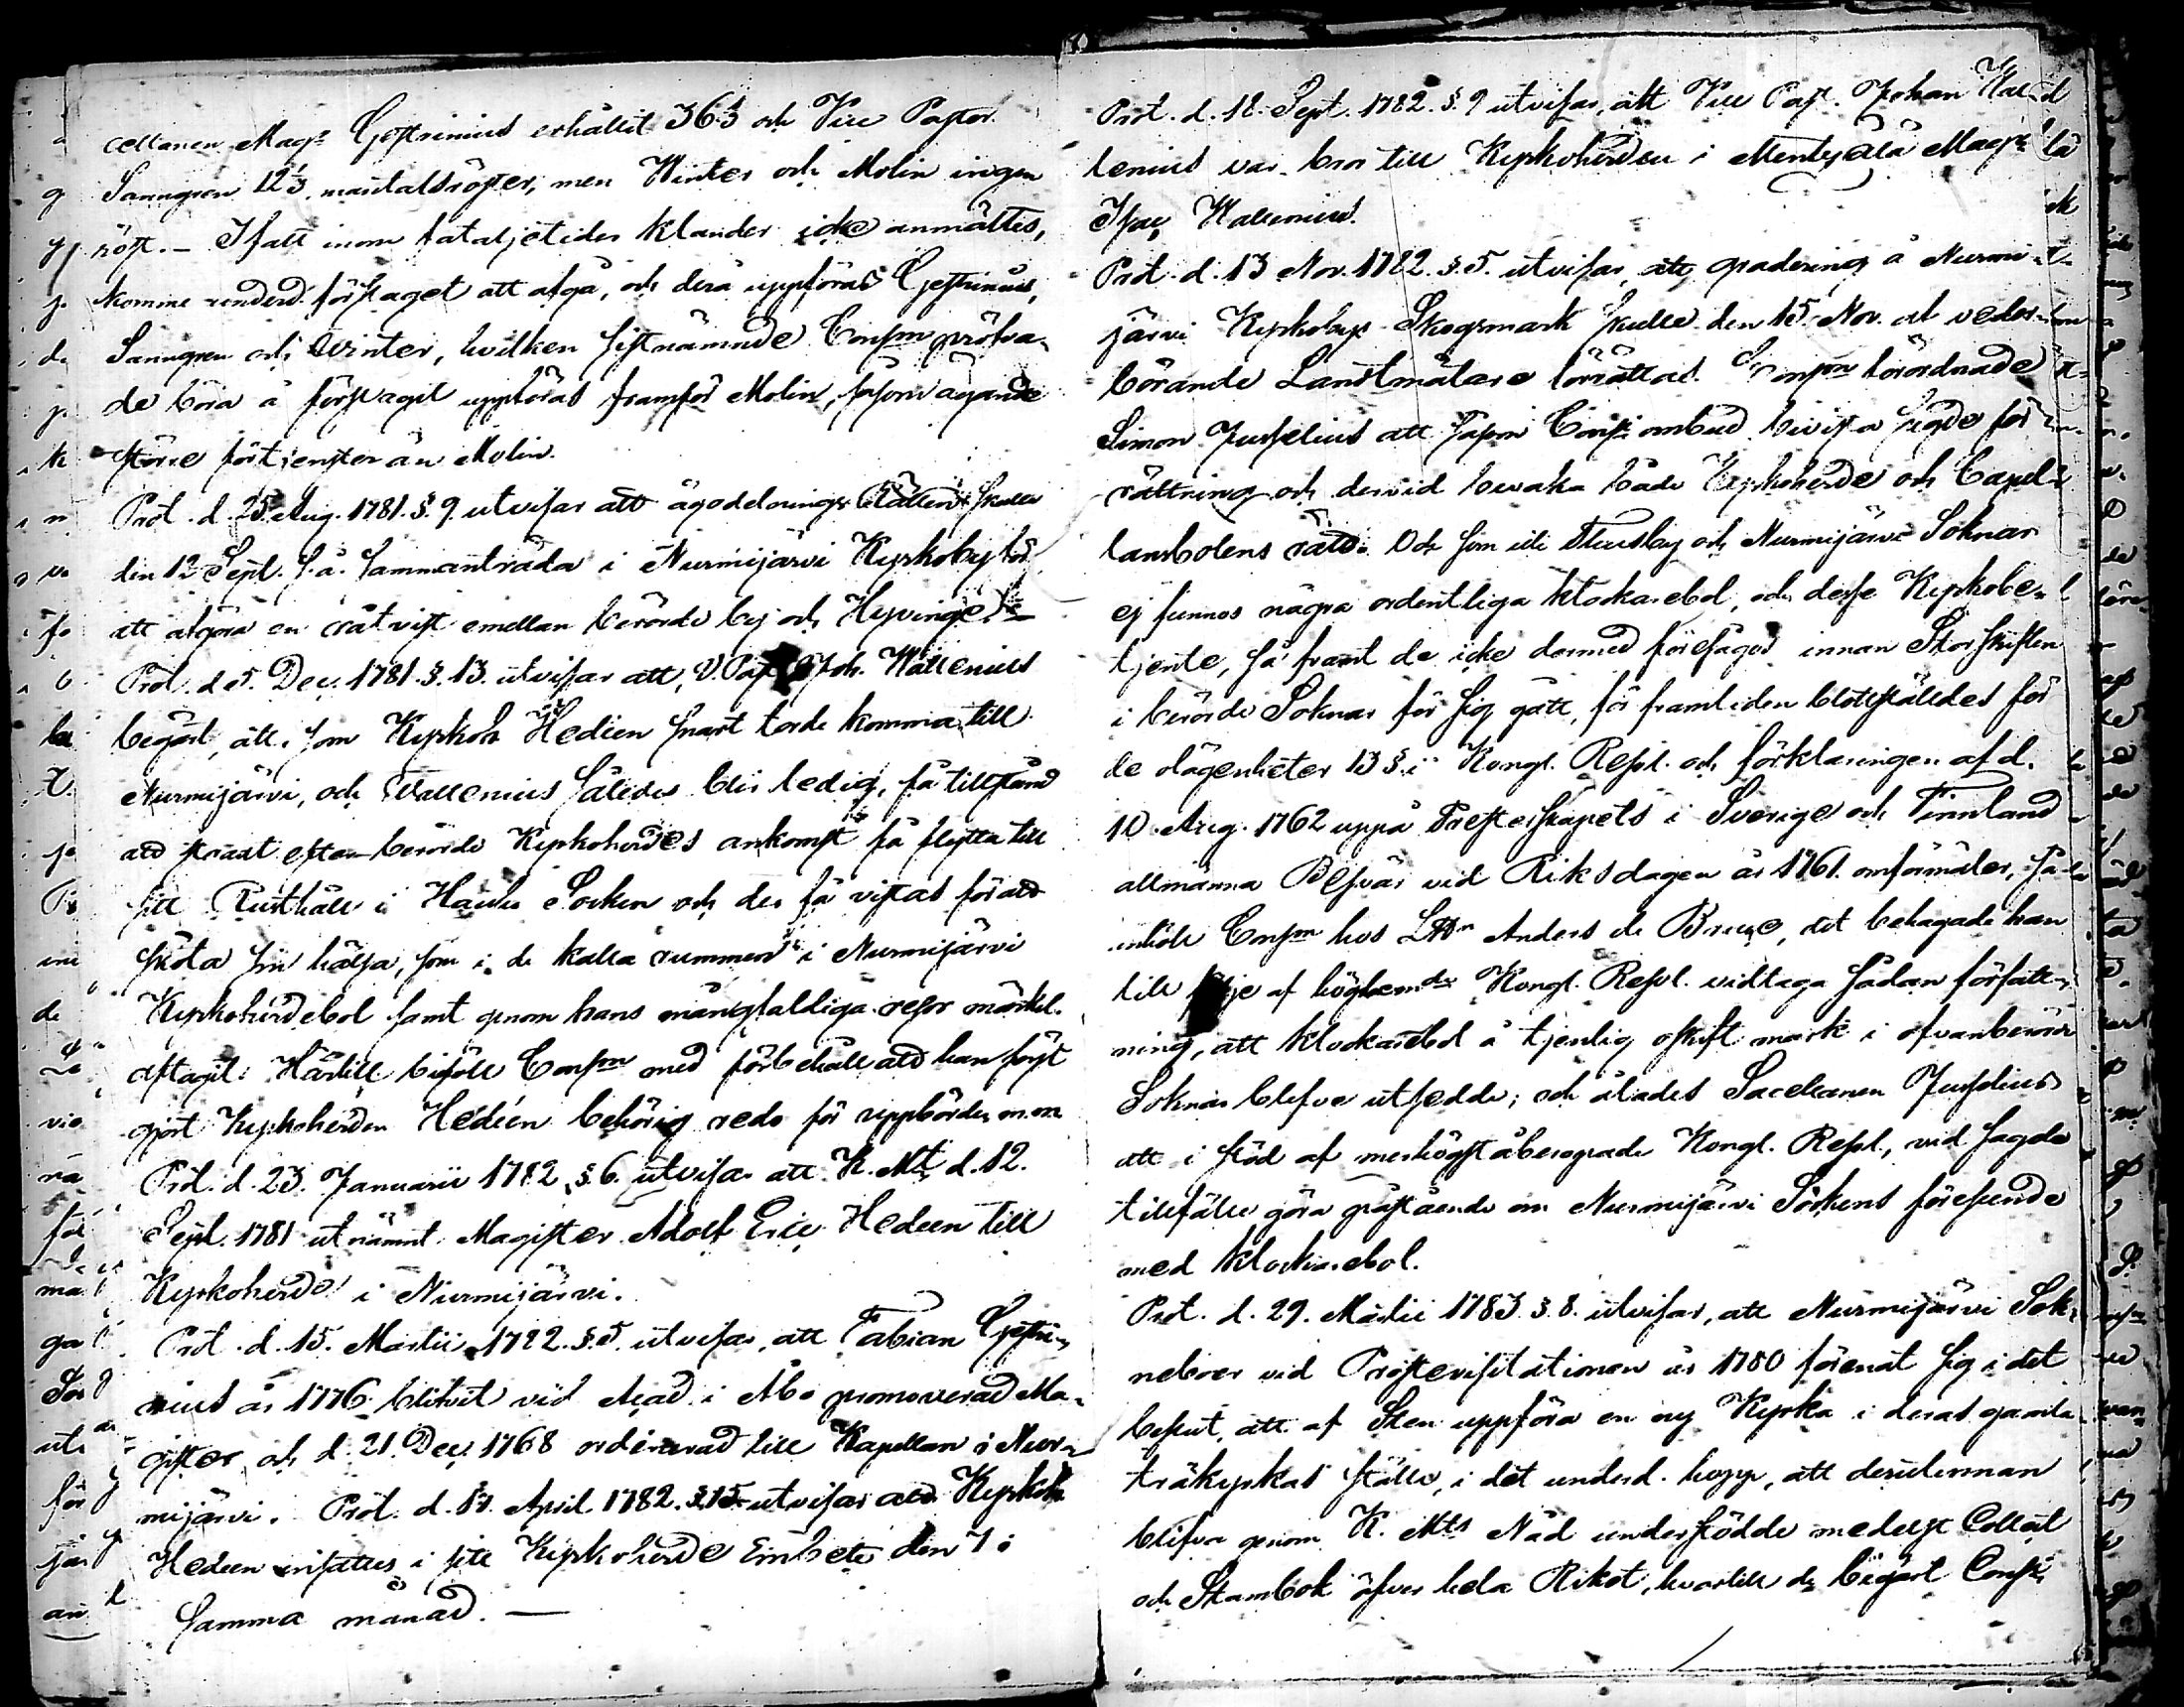 cellanen Mag:r Gestrinius erhållit 363 och Vice Pastor
Sanngren 12 1/3 mantalsröster, men Winter och Molin ingen
röst. – Ifall inom fataljetiden klander icke anmältes,
komme underd. förslaget att afgå, och derå uppföras Gestrinius,
Sanngren och Winter, hvilken sistnämnde Cons:m pröfva-
de böra å förslaget uppföras framför Molin, såsom ägande
större förtjenster än Molin.
Prot. d. 25 Aug. 1781. §. 9. utvisar att ägodelnings Rätten skulle
den 12 Sept. s. å. sammanträda i Nurmijärvi Kyrkoby för
att afgöra en råtvist emellan berörde by och Hyvinge. –
Prot. d. 5. Dec. 1781. §. 13. utvisar att, V. Past. Joh. Wallenius
begärt, att, som Kyrkoh. Hedéen snart torde komma till
Nurmijärvi, och Wallenius således blir ledig, få tillstånd
att straxt efter berörde Kyrkoherdes ankomst få flytta till
sitt Rusthåll i Hauho Socken och der få vistas för att
sköta sin hälsa, som i de kalla rummen i Nurmijärvi
Kyrkoherdebol samt genom hans mångfaldiga resor märkel.
aftagit. Härtill biföll Cons:m med förbehåll att han först
gjort Kyrkoherden Hedéen behörig redo för uppbörden m.m
Prot. d. 23. Januarii 1782 §. 6. utvisar att K. Mt d. 12.
Sept. 1781 utnämnt Magister Adolf Eric Hedeen till
Kyrkoherde i Nurmijärvi.
Prot. d. 15. Martii 1782. §. 5. utvisar, att Fabian Gestri-
nius år 1776 blifvit vid Acad. i Åbo promoverad Ma-
gister och d. 21. Dec. 1768 ordinerad till Kapellan i Nur-
mijärvi. Prot. d. 17. April. 1782. §. 15 utvisar att Kyrkoh.
Hedeen insattes i sitt Kyrkoherde Embete den 7 i
samma månad. —
Prot. d. 18. Sept. 1782. §. 9 utvisar, att Vice Past. Johan Wal-
lenius var bror till Kyrkoherden i Mentzälä Mag:r
Isac Wallenius.
Prot. d. 13 Nov. 1782. §. 5. utvisar, att gradering å Nurmi-
järvi Kyrkobys Skogsmark skulle den 15 Nov. af veder-
börande Landtmätare förrättas. Cons:m förordnade
Simon Juselius att såsom Cons:i ombud bivista sagde för-
rättning och dervid bevaka både Kyrkoherde och Capel-
lansbolens rätt. Och som uti Tuusby och Nurmijärvi Soknar
ej funnos några ordentliga klockarebol, och desse Kyrkobe-
tjente, så framt de icke dermed föresågos innan Storskiften
i berörde Soknar för sig gått, för framtiden blottställdes för
de olägenheter 13 §. i Kongl. Resol. och förklaringen af d.
10. Aug. 1762 uppå Presterskapets i Sverige och Finnland
allmänna Besvär vid Riksdagen år 1761. omförmäler, så
anhöll Cons:m hos Lttn Anders de Bruce, det behagade han
till följe af högbem:de Kongl. Resol. vidtaga sådan författ-
ning, att klockarebol å tjenlig oskift mark i ofvanberörde
Soknar blefve utsedde; och ålades Sacellanen Juselius
att i stöd af merhögst åberopade Kongl. Resol., vid sagde
tillfälle göra påstående om Nurmijärvi Sockens förseende
med klockarebol.
Prot. d. 29. Martii 1783. §. 8. utvisar, att Nurmijärvi Sok-
neboer vid Prostevisitationen år 1780 förenat sig i det
beslut, att af Sten uppföra en ny Kyrka i deras gamla
träkyrkas ställe, i det underd. hopp, att desutinnan
blifva genom K. Mts Nåd understödde medelst Collect
och Stambok öfver hela Riket, hvartill de begärt Cons:i